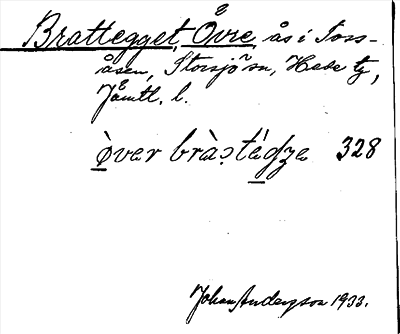 Brattegget, Övre, ås i Toss-
åsen, Storsjö sn, Hede tg,
Jämtl. l.
òver brà:tédze 328
Johan Anderson 1933.